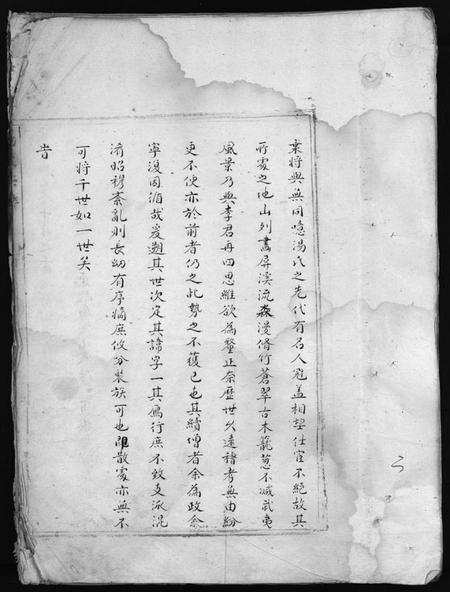 棄將與無同噫湯氏之先代有名人冠盖相望仕宦不絶故其
所處之地山列畫屏溪流淼漫脩竹蒼翠古木籠葱不减武夷
風景乃與李君再四思維欲為釐正奈歷世久遠稽考無由紛
更不便亦於前者仍之此勢之不獲已也其續增者余為政僉
寧复因循哉爰遡其世次定其諱字一其雁行庶不致支派混
淆昭穆紊亂則長幼有序嫡庶攸分裝族可也即散處亦無不
可將千世如一世矣
旹